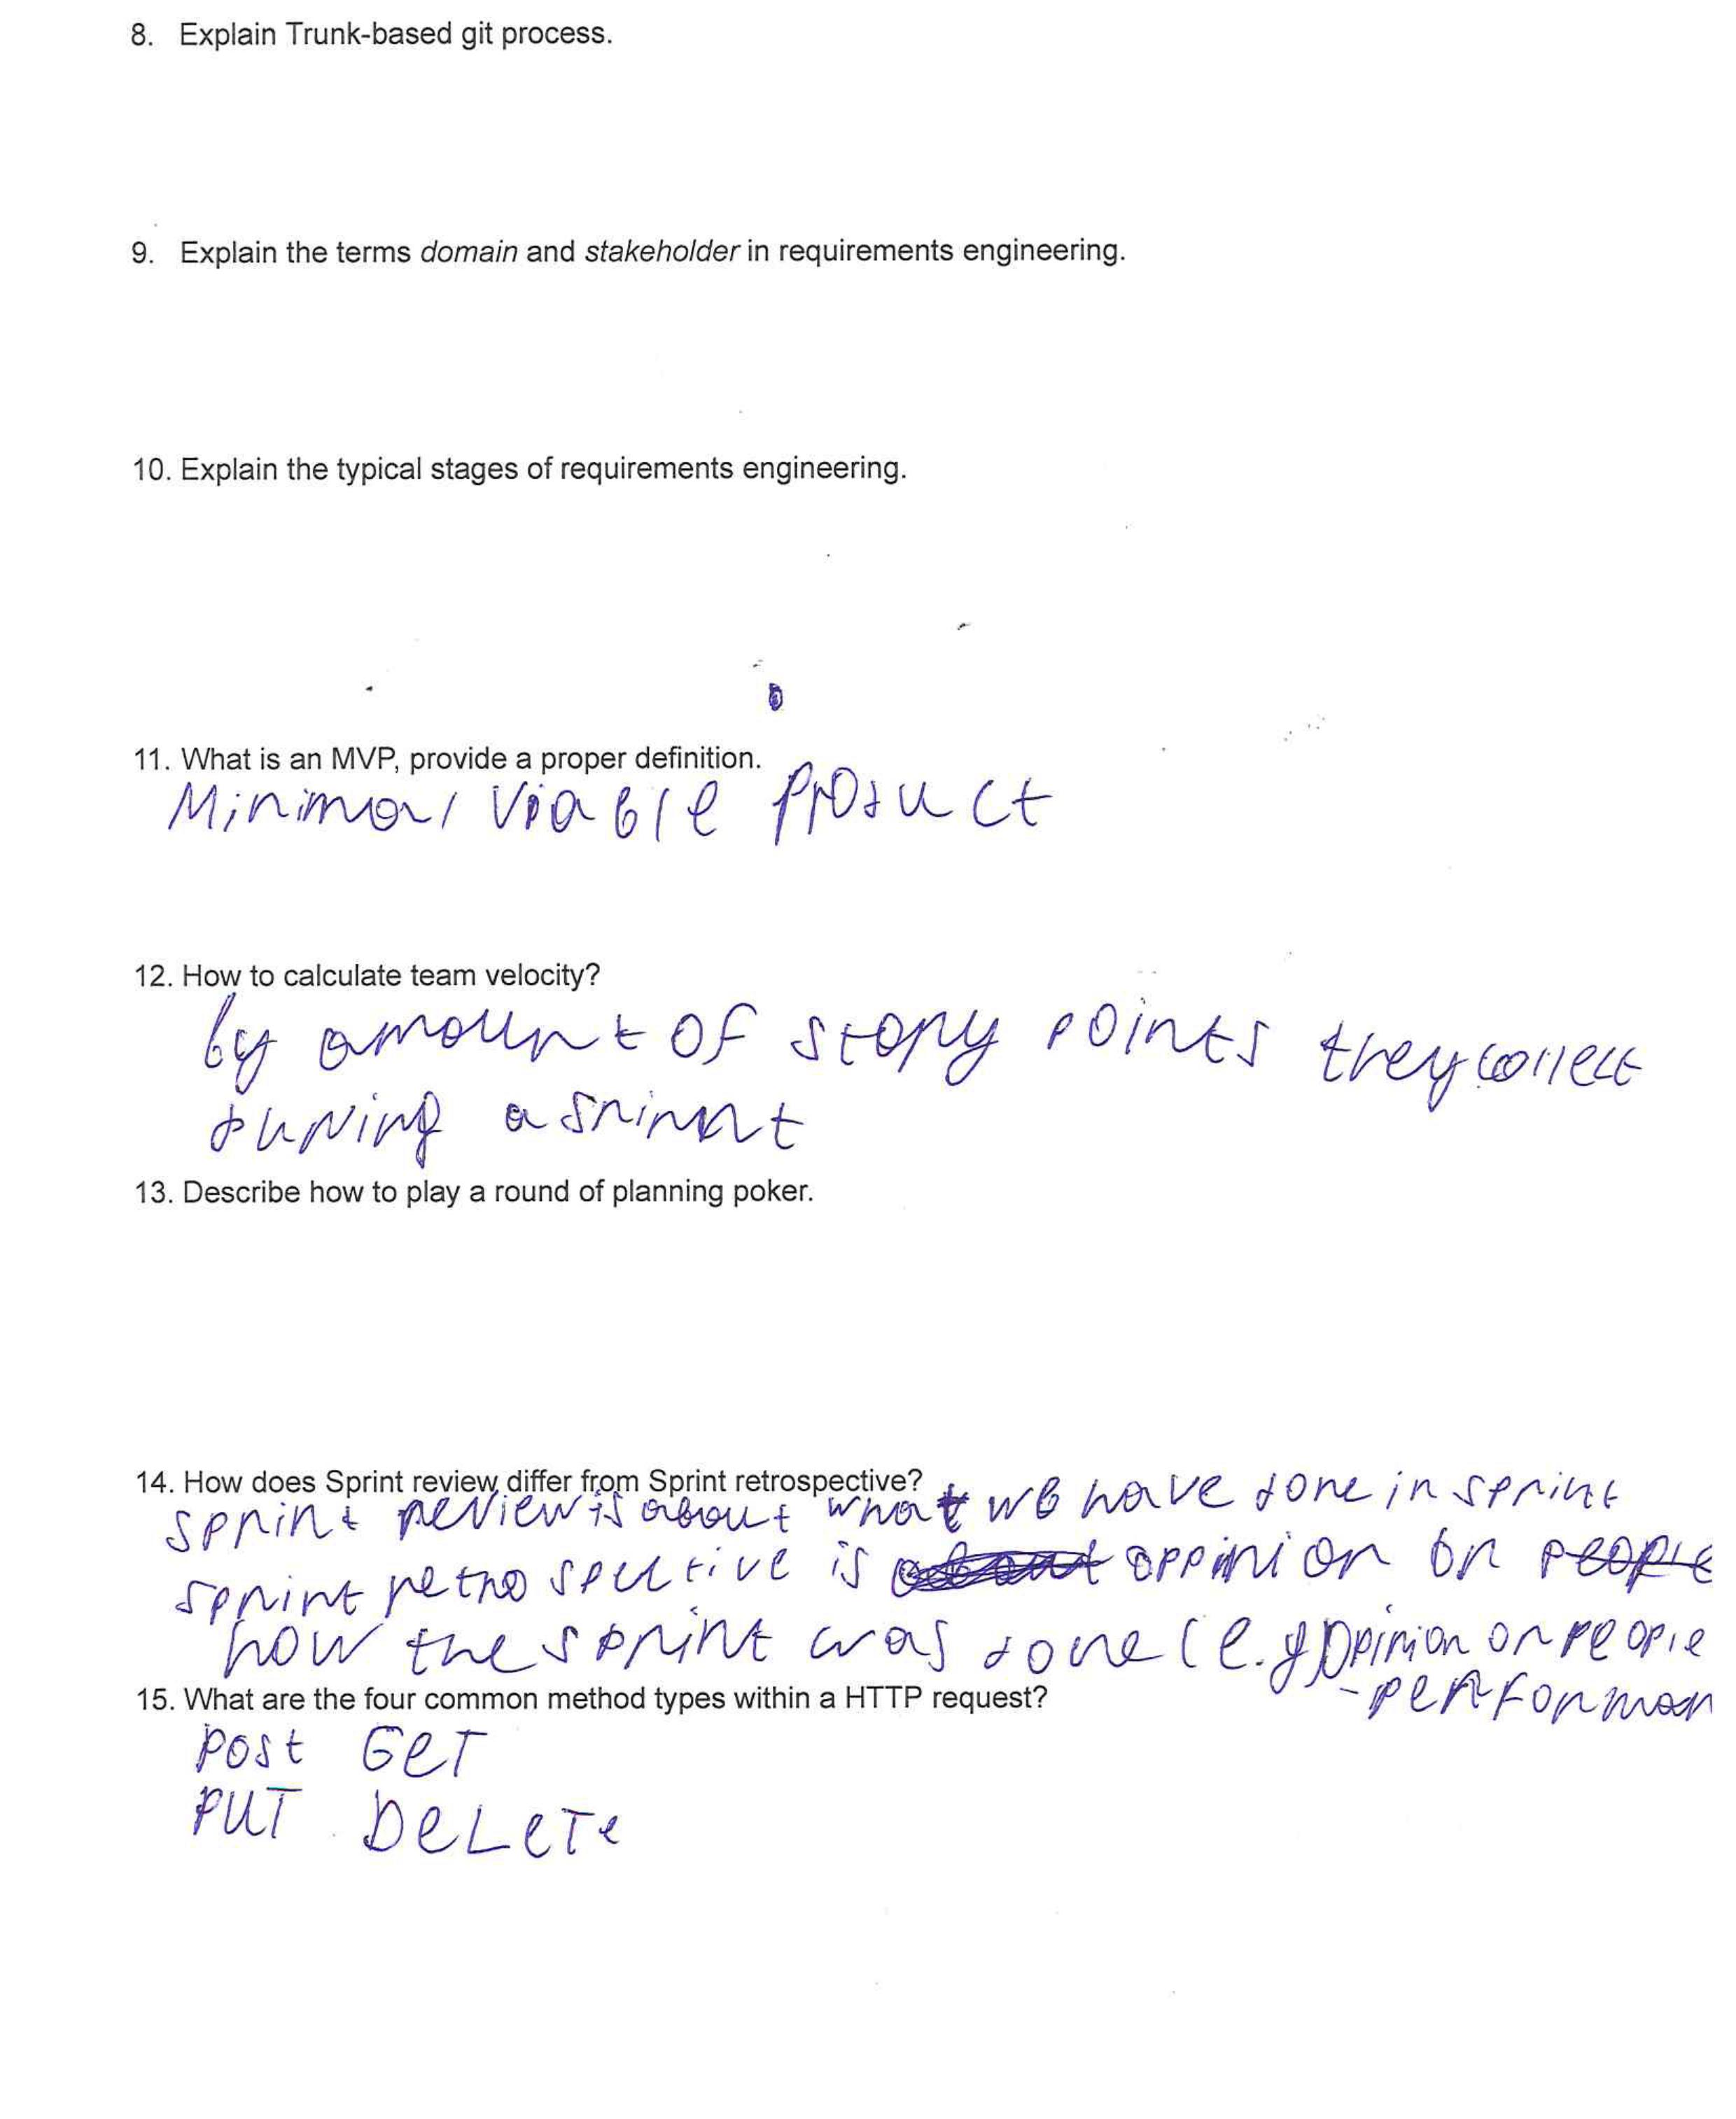 8. Explain Trunk-based git process.
9. Explain the terms domain and stakeholder in requirements engineering.
10. Explain the typical stages of requirements engineering.
11. What is an MVP, provide a proper definition.
Minimal Viable Product
12. How to calculate team velocity?
by amount of story points they collect
during a sprint
13. Describe how to play a round of planning poker.
14. How does Sprint review differ from Sprint retrospective?
sprint review is about what we have done in sprint
sprint retrospective is oppinion on people
how the sprint was done (e.g opinion on people
-performan
15. What are the four common method types within a HTTP request?
Post GeT
PUT DeLeTe